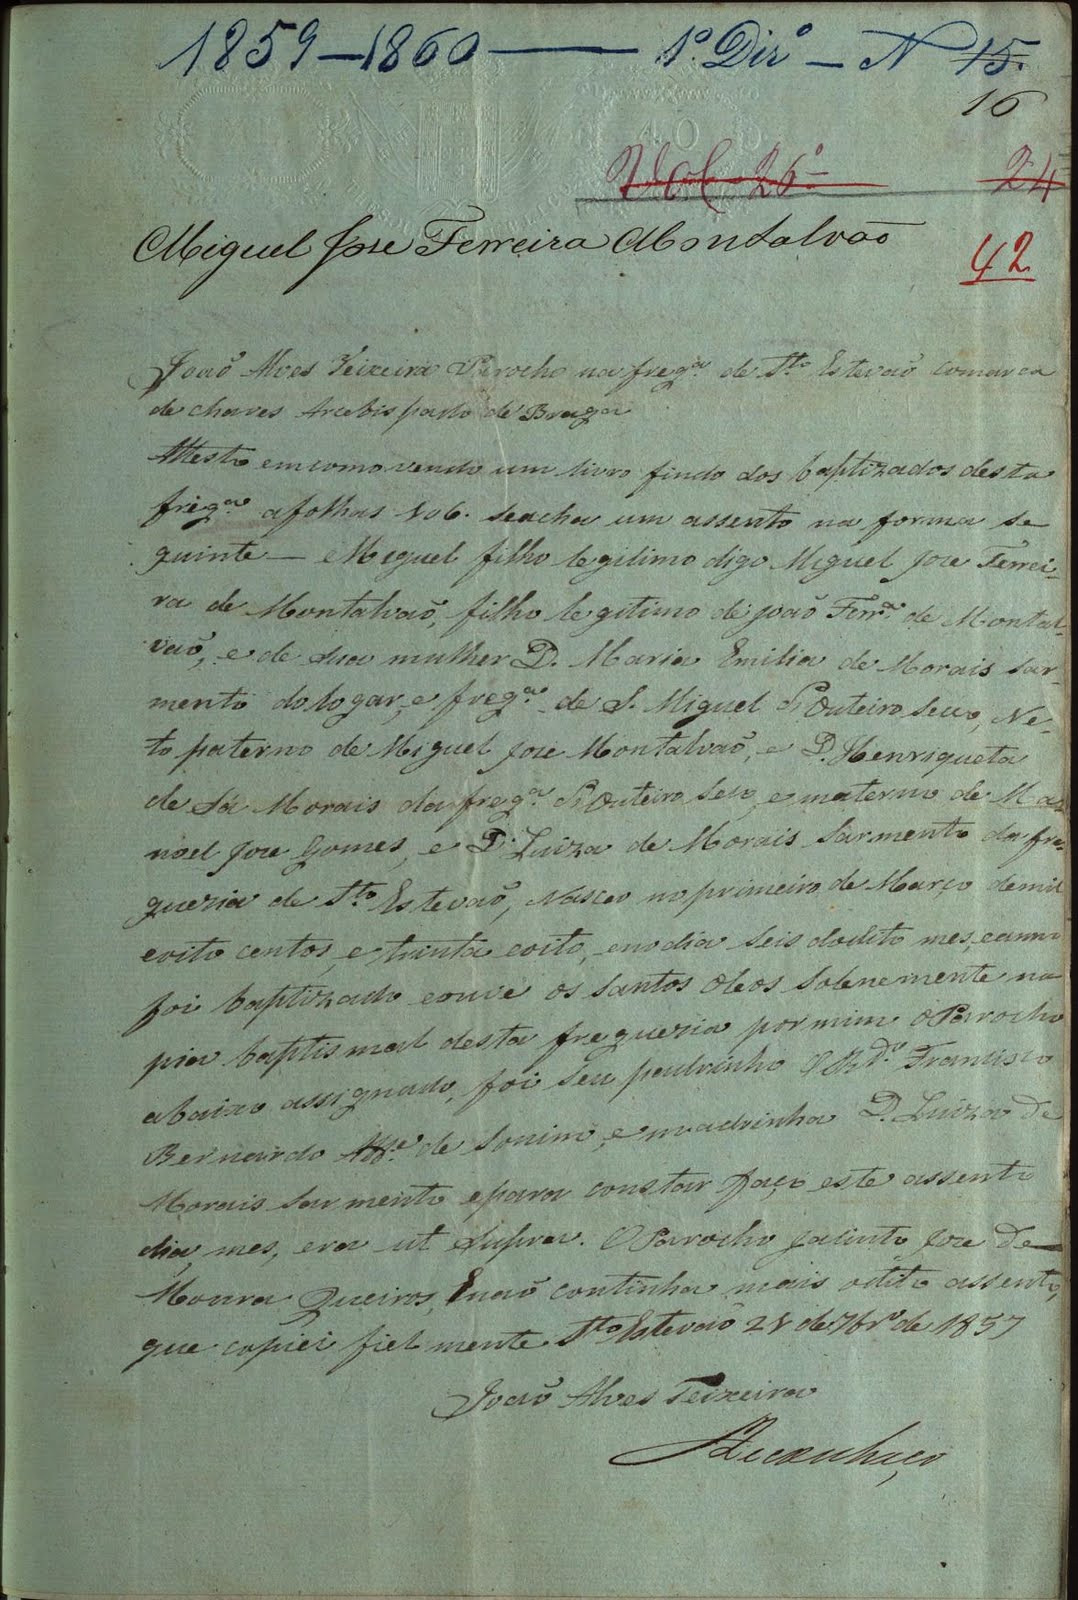 1859–1860 — 1º Dirº – N 15.
16
Vol 26º 24
Miguel Jose Ferreira Montalvaõ
42
Joaõ Alves Teixeira Parocho na fregª. de Stº Estevaõ comarca
de chaves Arcebispado de Braga
Attesto em como vendo um livro findo dos baptizados desta
fregª. afolhas 106. seacha um assento na forma se-
guinte — Miguel filho legitimo digo Miguel Jose Ferrei-
ra de Montalvaõ, filho legitimo de Joaõ Ferrª. de Montal-
vaõ, e de sua mulher D. Maria Emilia de Morais Sar-
mento do logar, e fregª. de S. Miguel d'Outeiro Seco, Ne-
to paterno de Miguel Jose Montalvaõ, e D. Henriqueta
de Sá Morais da fregª. d'Outeiro Seco, e materno de Ma-
noel Jose Gomes, e D. Luiza de Morais Sarmento da fre-
guezia de Stº Estevaõ, Nasceo no primeiro de Março demil
eoito centos, e trinta eoito, enodia seis dodito mes, eanno
foi baptizado eouve os santos oleos solenemente na
pia baptismal desta freguezia pormim o Parocho
abaixo assignado, foi seu padrinho o Rdº. Francisco
Bernardo de Sonim, e madrinha D. Luiza de
Morais Sarmento epara constar faço este assento
dia, mes, era ut supra. O Parocho Jacinto Jose de
Moura Queiros, Enaõ continha mais odito assento,
que copiei fielmente. Stº Estevaõ 28 de 7brº de 1857
Joaõ Alves Teixeira
Reconheço